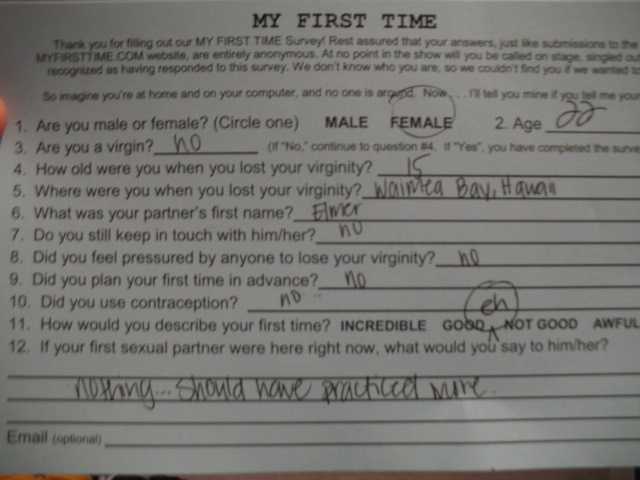 MY FIRST TIME
Thank you for filling out our MY FIRST TIME Survey! Rest assured that your answers, just like submissions to the
MYFIRSTTIME.COM website, are entirely anonymous. At no point in the show will you be called on stage, singled out
recognized as having responded to this survey. We don't know who you are, so we couldn't find you if we wanted to
So imagine you're at home and on your computer, and no one is around. Now . . . I'll tell you mine if you tell me your
1. Are you male or female? (Circle one) MALE FEMALE 2. Age 22
3. Are you a virgin? no (If "No," continue to question #4. If "Yes", you have completed the surve
4. How old were you when you lost your virginity? 15
5. Where were you when you lost your virginity? Waimea Bay, Hawaii
6. What was your partner's first name? Elmer
7. Do you still keep in touch with him/her? no
8. Did you feel pressured by anyone to lose your virginity? no
9. Did you plan your first time in advance? no
10. Did you use contraception? no
eh
11. How would you describe your first time? INCREDIBLE GOOD NOT GOOD AWFUL
12. If your first sexual partner were here right now, what would you say to him/her?
nothing... should have practiced more.
Email (optional)